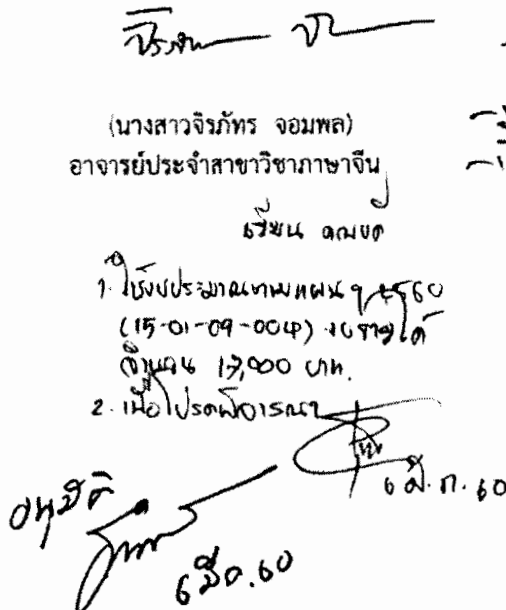 (นางสาวจิรภัทร จอมพล)
อาจารย์ประจำสาขาวิชาภาษาจีน
เรียน คณบดี
1. ใช้งบประมาณตามแผน ปี 2560
(15-01-09-004) งบรายได้
จำนวน 17,000 บาท.
2. เพื่อโปรดพิจารณา
6 มี.ค. 60
อนุมัติ
6 มีค. 60